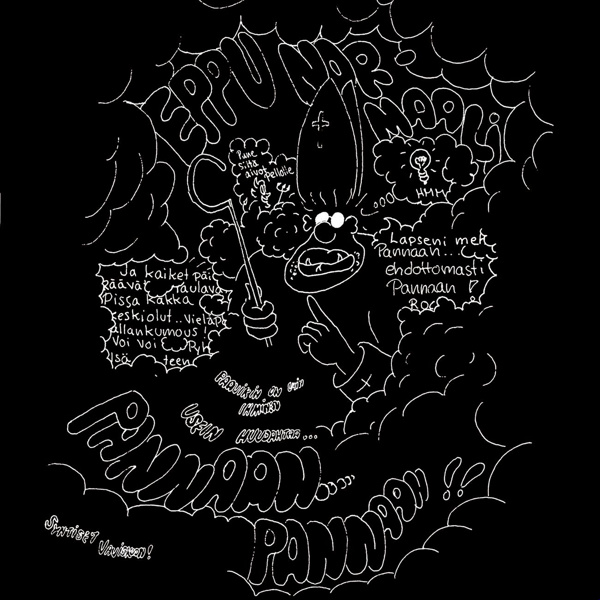 EPPU NOR-
MAALI
Pane
siltä
aivot pellolle
HMM
Lapseni meh
Pannaan...
ehdottomasti
Pannaan !
Ja kaiket päi
räävät raulava
Pissa kakka
keskiolut.. Vieläpä
allankumous!
Voi voi
Isä teen
IHMINEN
USEIN HUUDAHTAA...
PANNAAN....
PANNAAN!!
SYNTISET VAVISKAA!